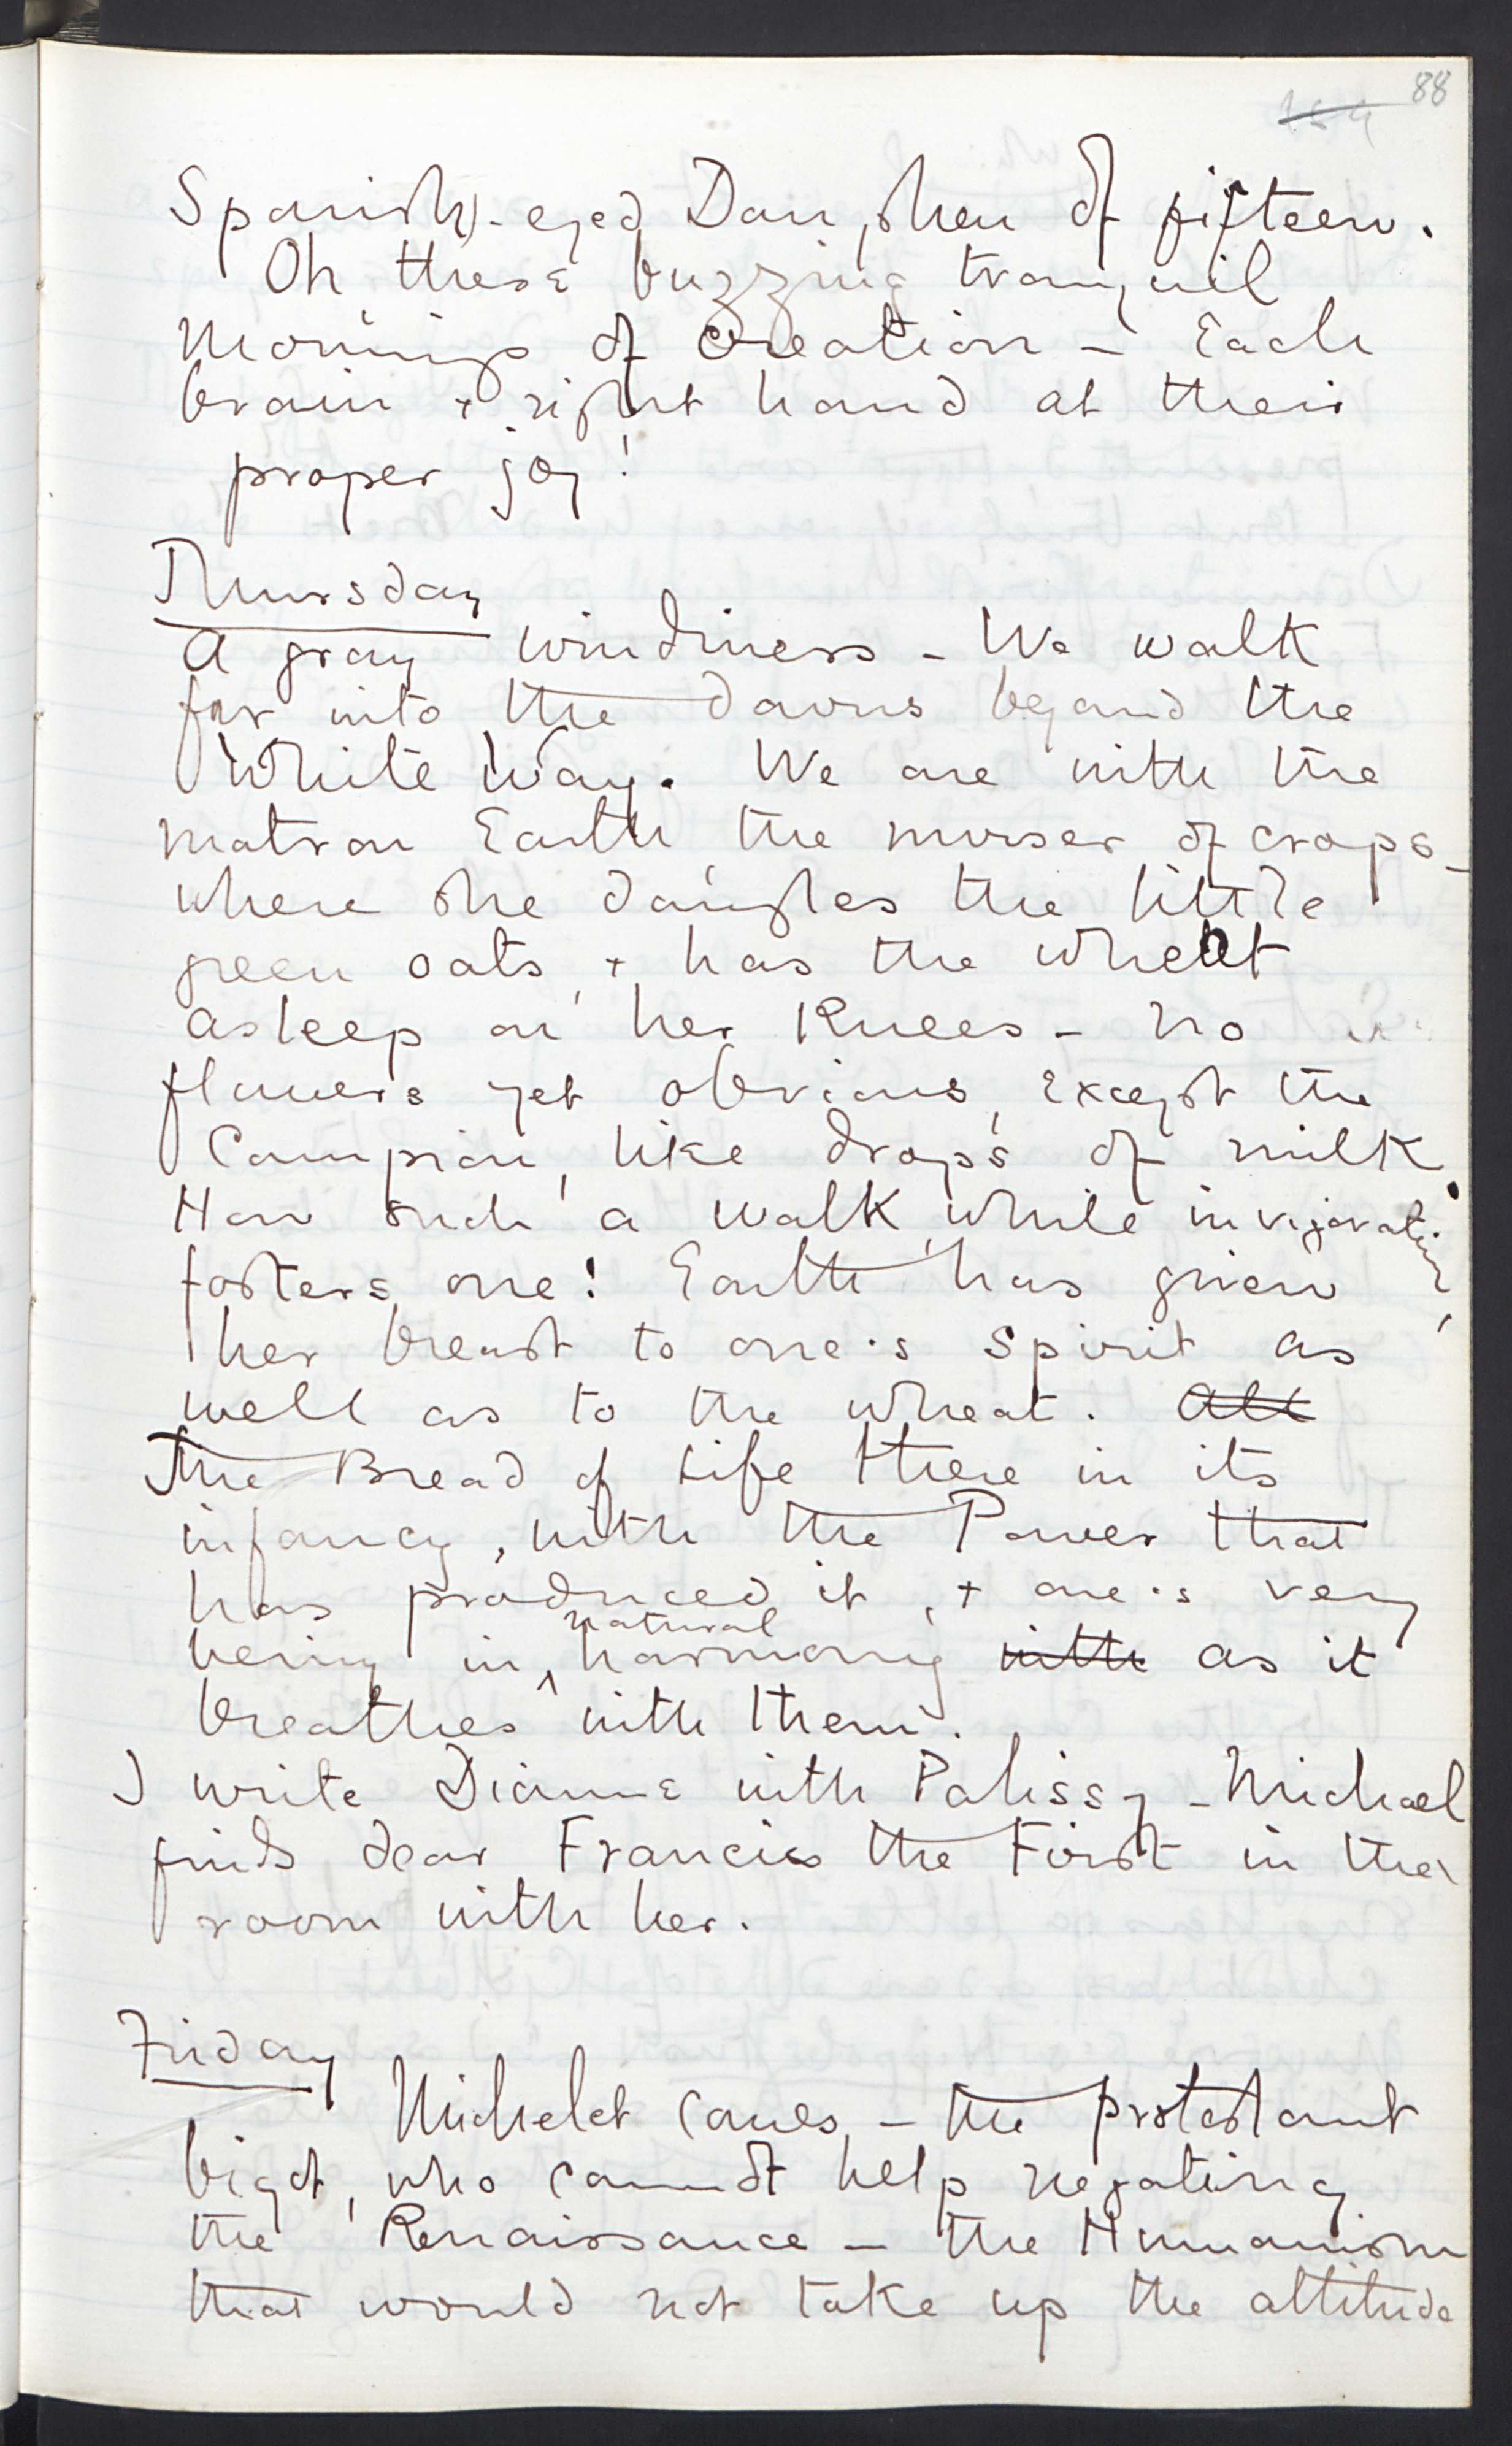 88
154
Spanish-eyed Dauphin of fifteen.
Oh these buzzing tranquil
mornings of creation – Each
brain + right hand at their
proper joy!
Thursday
A gray windiness – We walk
far into the downs beyond the
White Way. We are with the
matron Earth the nurser of crops –
where she dangles the little
green oats, + has the wheat
asleep on her knees – no
flowers yet obvious, except the
Campion, like drops of milk.
How such a walk, while invigorating,
fosters one! Earth has given
her breast to one's spirit as
well as to the wheat. All
The Bread of Life there in its
infancy, with the Power that
has produced it, + one's very
being in natural harmony with as it
breathes with them.
I write Dianne with Palissy – Michael
finds dear Francis the First in the
room with her.
Friday
Michelet comes, – the protestant
bigot, who cannot help negating
the Renaissance – the Humanism
that would not take up the attitude